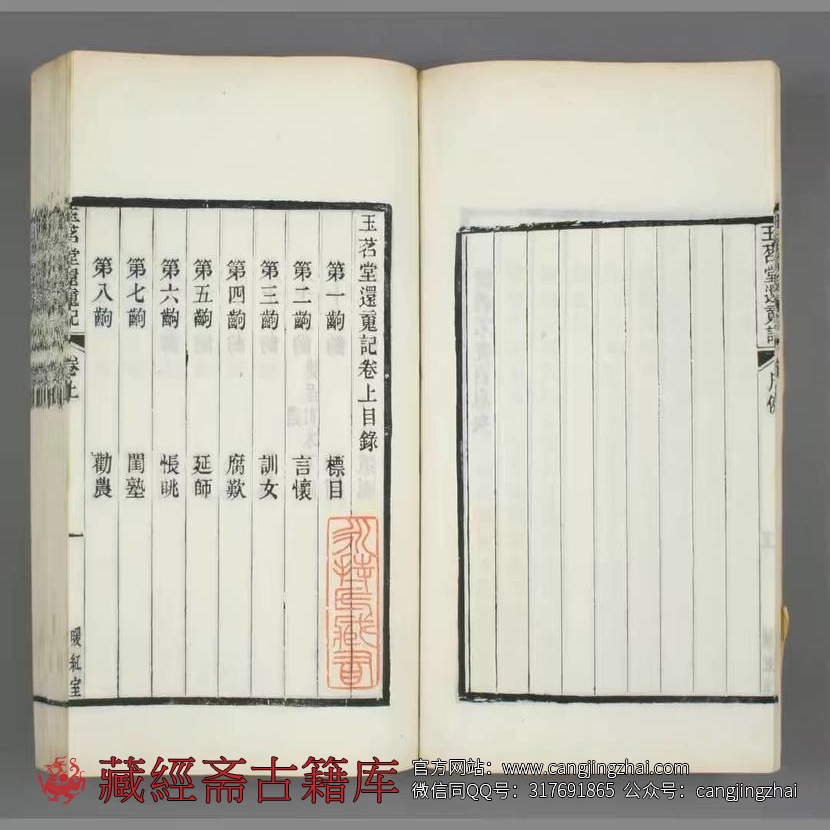 玉茗堂還䰟記
序例
玉茗堂還䰟記卷上目錄
第一齣 標目
第二齣 言懷
第三齣 訓女
第四齣 腐歎
第五齣 延師
第六齣 悵眺
第七齣 閨塾
第八齣 勸農
玉茗堂還䰟記
卷上
一
暖紅室
藏經斋古籍库
官方网站：www.cangjingzhai.com
微信同QQ号：317691865 公众号：cangjingzhai